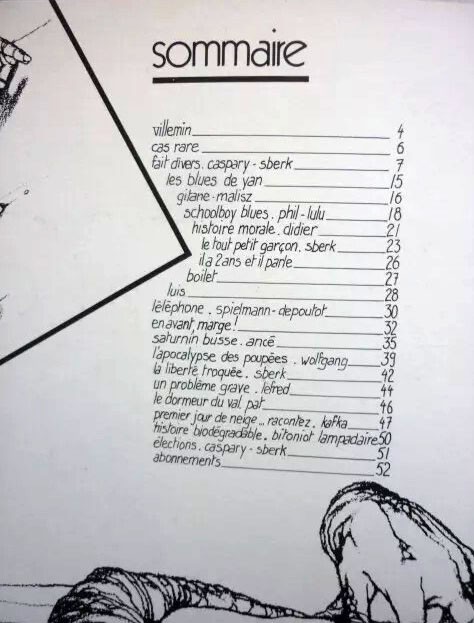 sommaire
villemin 4
cas rare 6
fait divers. caspary - sberk 7
les blues de yan 15
gitane - malisz 16
schoolboy blues. phil - lulu 18
histoire morale. didier 21
le tout petit garçon. sberk 23
il a 2 ans et il parle 26
boilet 27
luis 28
téléphone. spielmann - depoutot 30
en avant, marge! 32
saturnin busse. ancê 35
l'apocalypse des poupées. wolfgang 39
la liberté troquée. sberk 42
un problème grave. lefred 44
le dormeur du val. pat 46
premier jour de neige... racontez. kafka 47
histoire biodégradable. bitoniot lampadaire 50
élections. caspary - sberk 51
abonnements 52